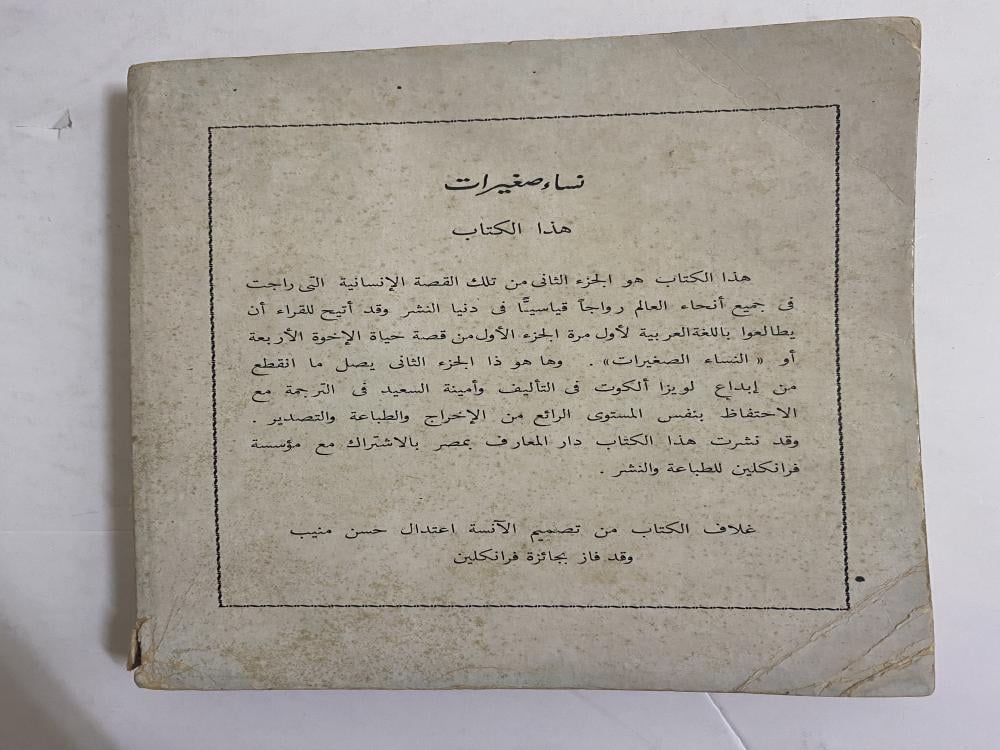 نساء صغيرات
هذا الكتاب
هذا الكتاب هو الجزء الثانى من تلك القصة الإنسانية التى راجت
فى جميع أنحاء العالم رواجاً قياسيًّا فى دنيا النشر وقد أتيح للقراء أن
يطالعوا باللغة العربية لأول مرة الجزء الأول من قصة حياة الإخوة الأربعة
أو « النساء الصغيرات» . وها هو ذا الجزء الثانى يصل ما انقطع
من إبداع لويزا ألكوت فى التأليف وأمينة السعيد فى الترجمة مع
الاحتفاظ بنفس المستوى الرائع من الإخراج والطباعة والتصدير .
وقد نشرت هذا الكتاب دار المعارف بمصر بالاشتراك مع مؤسسة
فرانكلين للطباعة والنشر .
غلاف الكتاب من تصميم الآنسة اعتدال حسن منيب
وقد فاز بجائزة فرانكلين